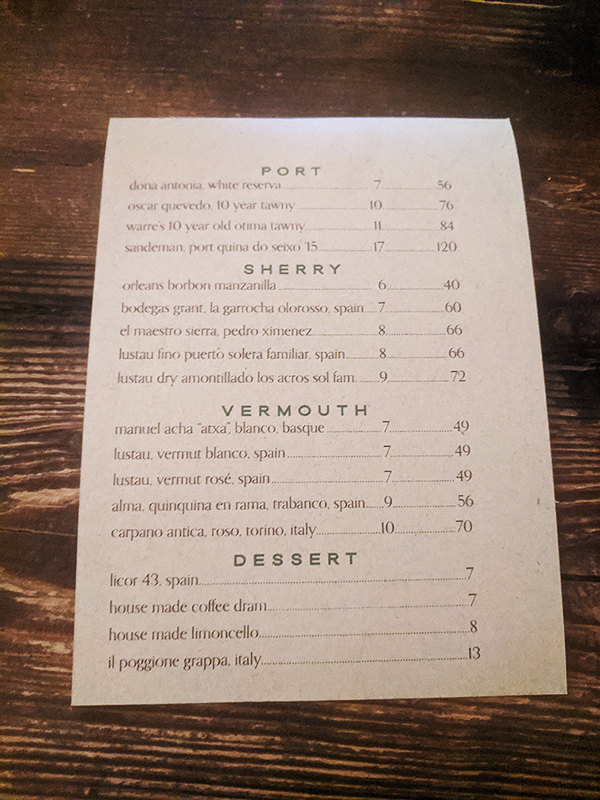 PORT
dona antonia, white reserva 7 56
oscar quevedo, 10 year tawny 10 76
warre's 10 year old otima tawny 11 84
sandeman, port quina do seixo '15 17 120
SHERRY
orleans borbon manzanilla 6 40
bodegas grant, la garrocha olorosso, spain 7 60
el maestro sierra, pedro ximenez 8 66
lustau fino puerto solera familiar, spain 8 66
lustau dry amontillado los acros sol fam. 9 72
VERMOUTH
manuel acha "atxa", blanco, basque 7 49
lustau, vermut blanco, spain 7 49
lustau, vermut rosé, spain 7 49
alma, quinquina en rama, trabanco, spain 9 56
carpano antica, roso, torino, italy 10 70
DESSERT
licor 43, spain 7
house made coffee dram 7
house made limoncello 8
il poggione grappa, italy 13